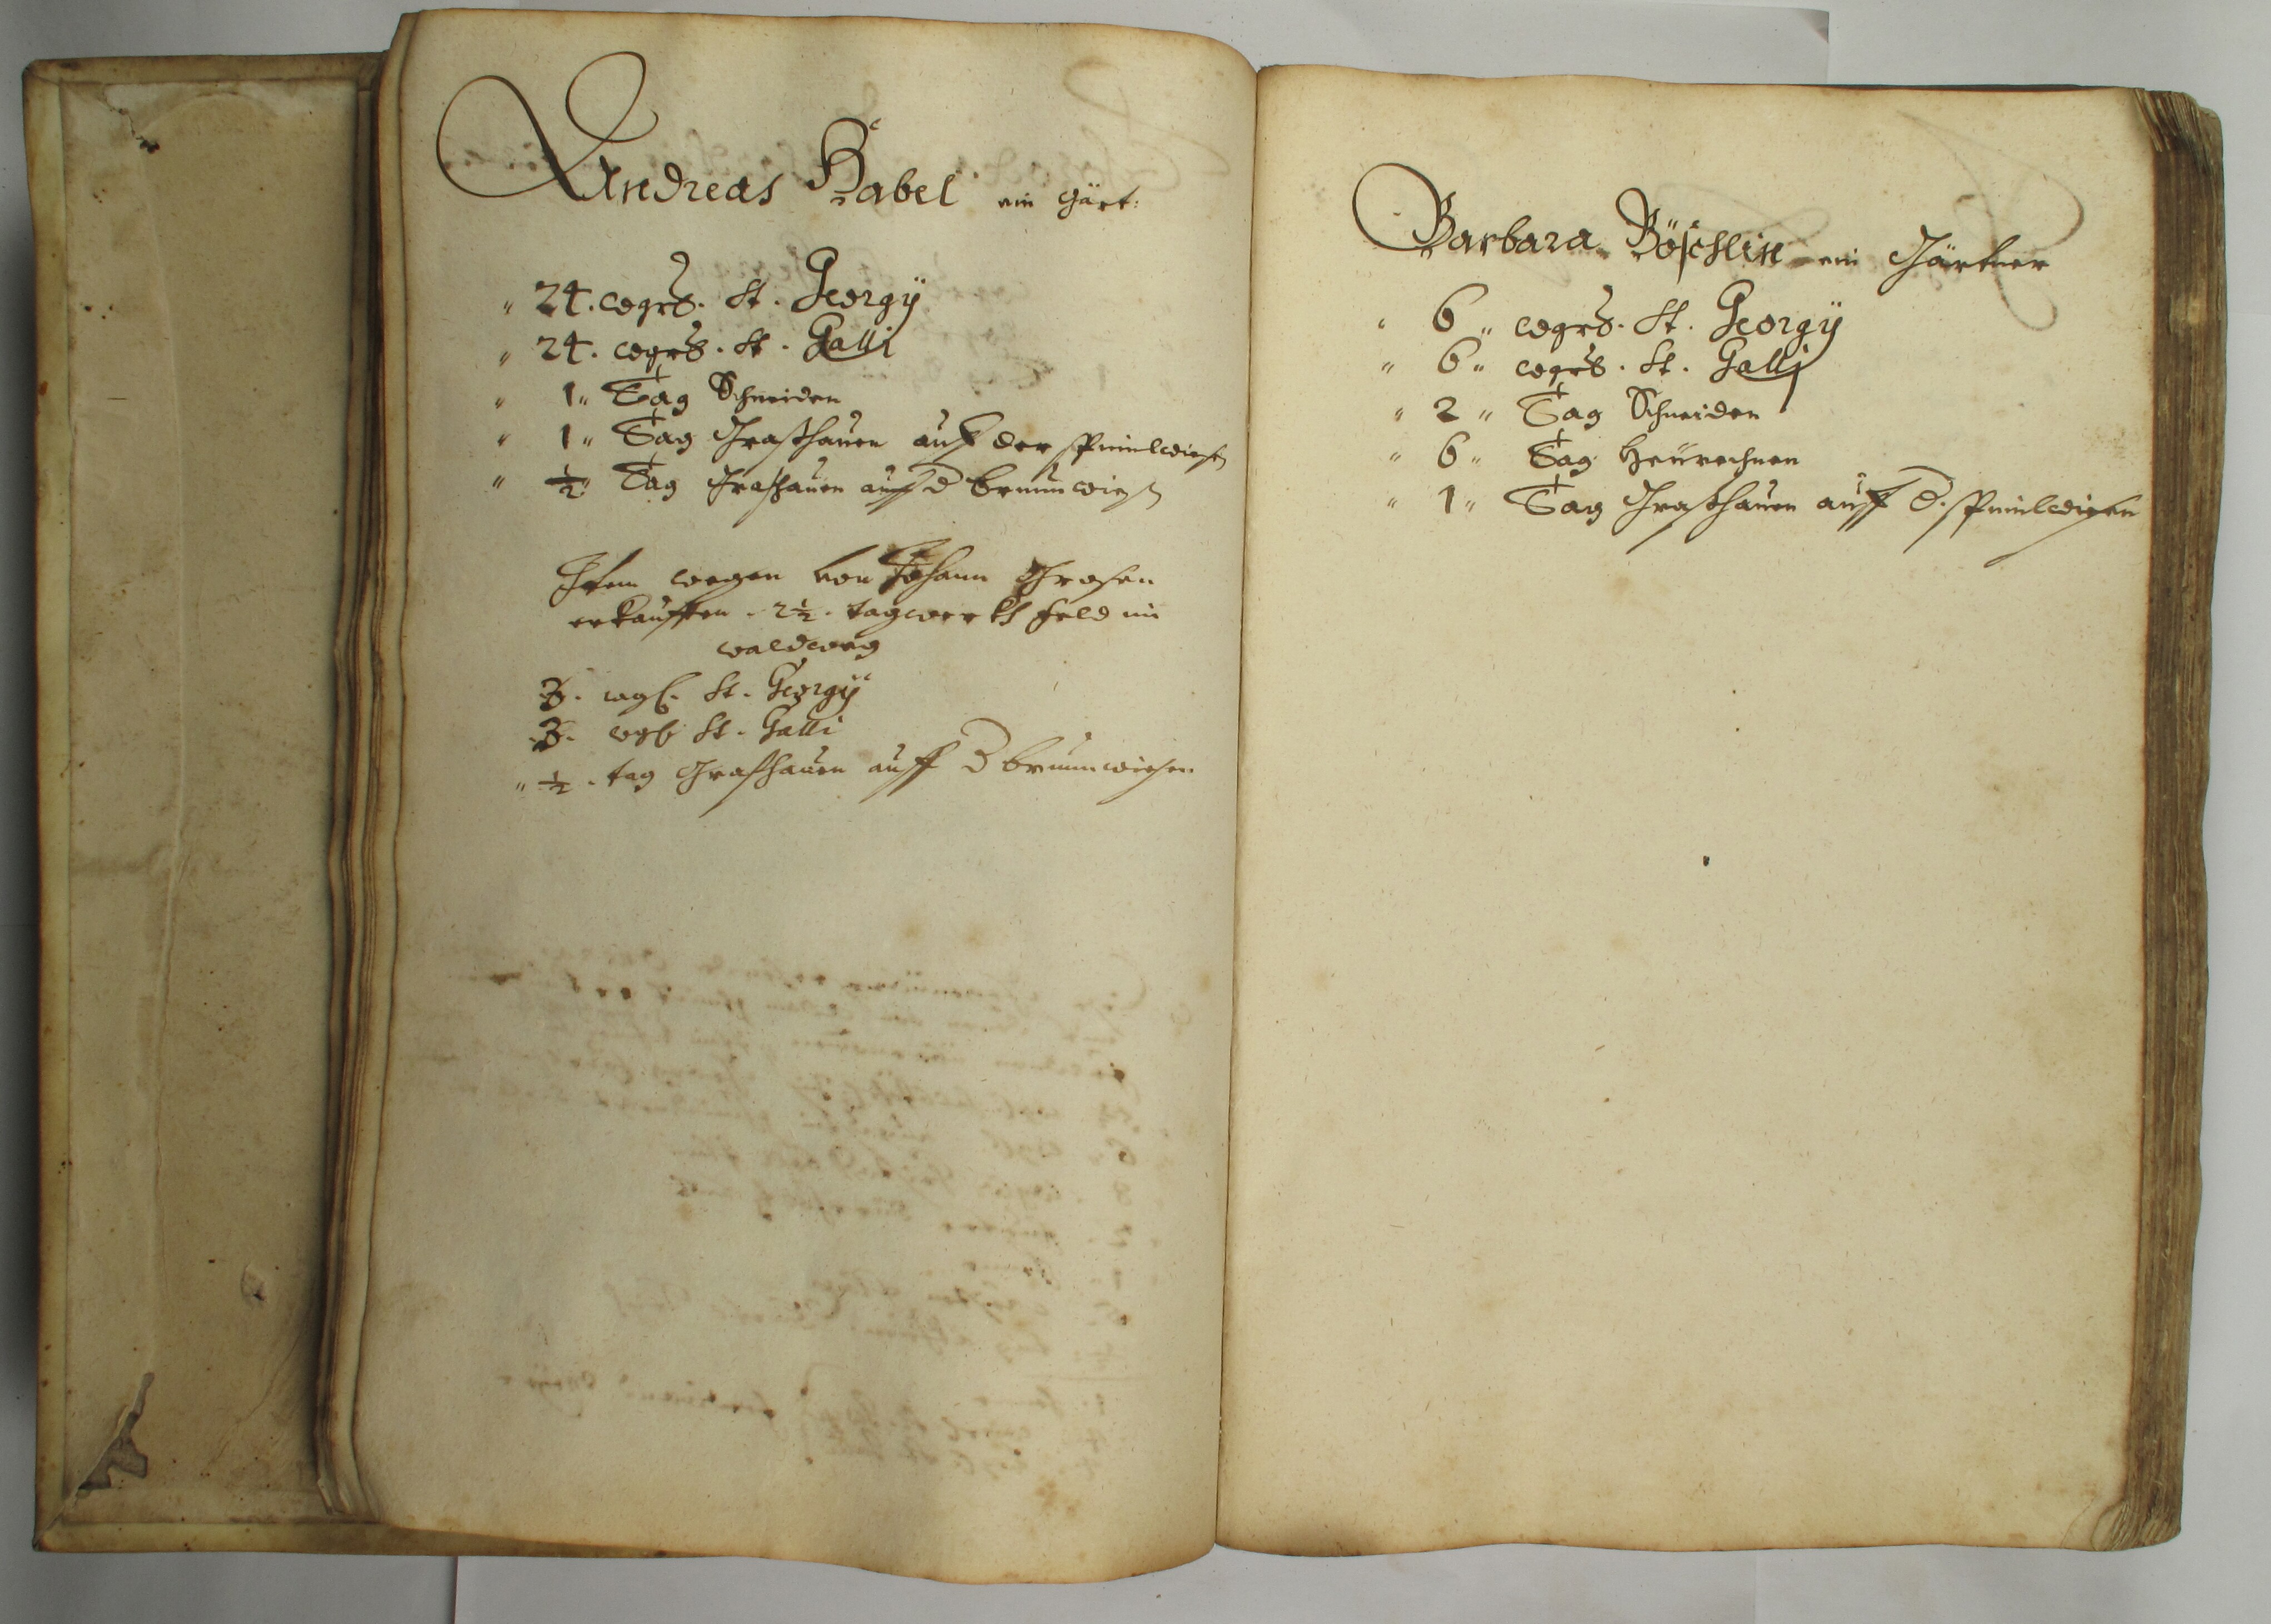 Andreas Babel ein Gärt:
" 24. wgrß. St. Georgÿ
" 24. wgrß. St. Galli
" 1 " Tag Schneiden
" 1 " Tag Graßhauen auf der
" ½ " Tag Graßhauen auff d brunnwiesen
Item wegen von Johann Grosen
erkaufften 2½ tagwerkh feld im
waldweg
3. wgß. St. Georgÿ
3. wgß St. Galli
" ½ tag Graßhauen auff d brunnwiesen
Barbara Böschlin ein Gärtner
" 6 " wgrß. St. Georgÿ
" 6 " wgrß. St. Galli
" 2 " Tag Schneiden
" 6 " Tag Heürechnen
" 1 " Tag Graßhauen auff d.